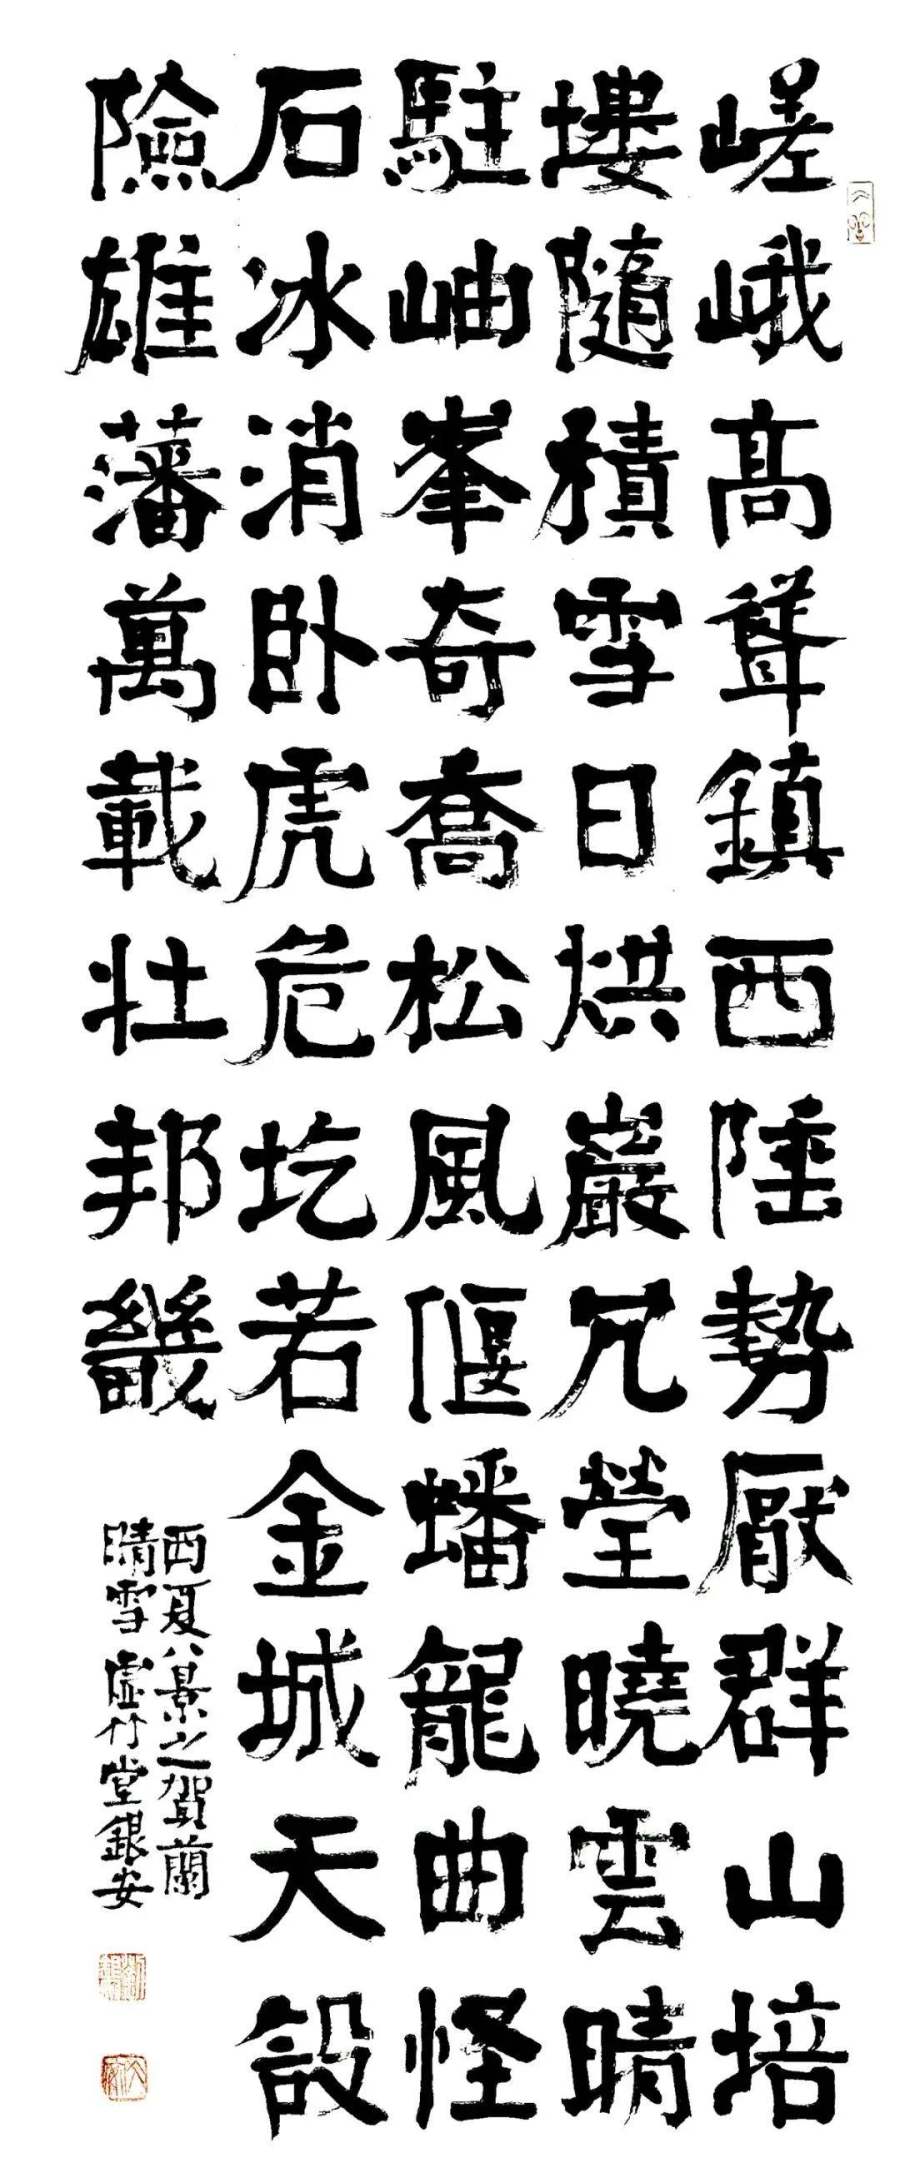 嵯峨高聳鎮西陲勢厭群山培
塿隨積雪日烘巖冗瑩曉雲晴
駐岫峯奇喬松風偃蟠龍曲怪
石冰消卧虎危圪若金城天設
險雄藩萬載壯邦畿
西夏八景之賀蘭
晴雪虛竹堂銀安